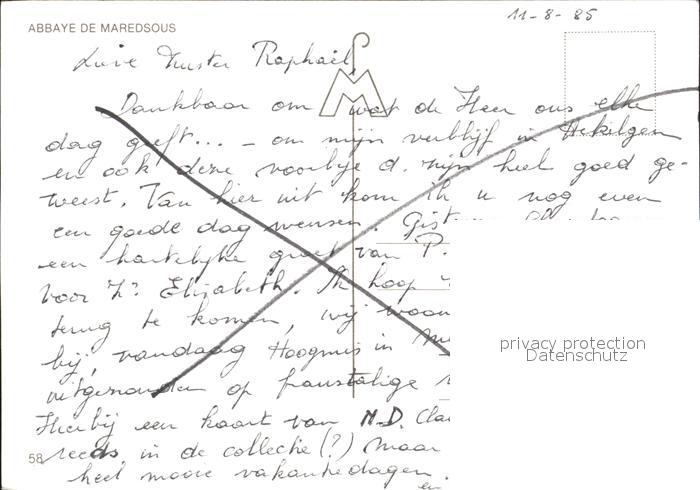 11-8-85
ABBAYE DE MAREDSOUS
Lieve Zuster Raphaël
Dankbaar om wat de Heer ons elke
dag geeft... - om mijn verblijf in
en ook deze voorbije d. zijn heel goed ge-
weest. Van hier uit kom ik u nog even
een goede dag wensen.
een hartelijke groet van P.
voor Zr Elisabeth. Ik hoop
terug te komen, wij
bij, vandaag Hoogmis in
uitgezonden op franstalige
Hierbij een kaart van N.D.
58 reeds in de collectie (?) maar
heel mooie vakantiedagen
en
privacy protection
Datenschutz